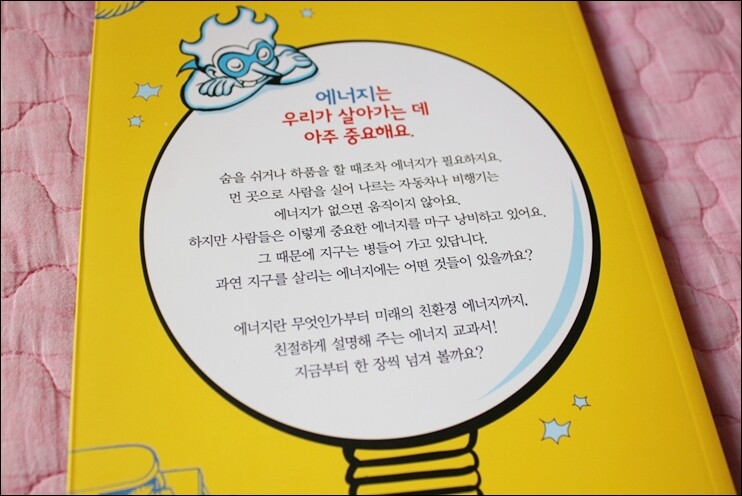 에너지는
우리가 살아가는 데
아주 중요해요.
숨을 쉬거나 하품을 할 때조차 에너지가 필요하지요.
먼 곳으로 사람을 실어 나르는 자동차나 비행기는
에너지가 없으면 움직이지 않아요.
하지만 사람들은 이렇게 중요한 에너지를 마구 낭비하고 있어요.
그 때문에 지구는 병들어 가고 있답니다.
과연 지구를 살리는 에너지에는 어떤 것들이 있을까요?
에너지란 무엇인가부터 미래의 친환경 에너지까지,
친절하게 설명해 주는 에너지 교과서!
지금부터 한 장씩 넘겨 볼까요?